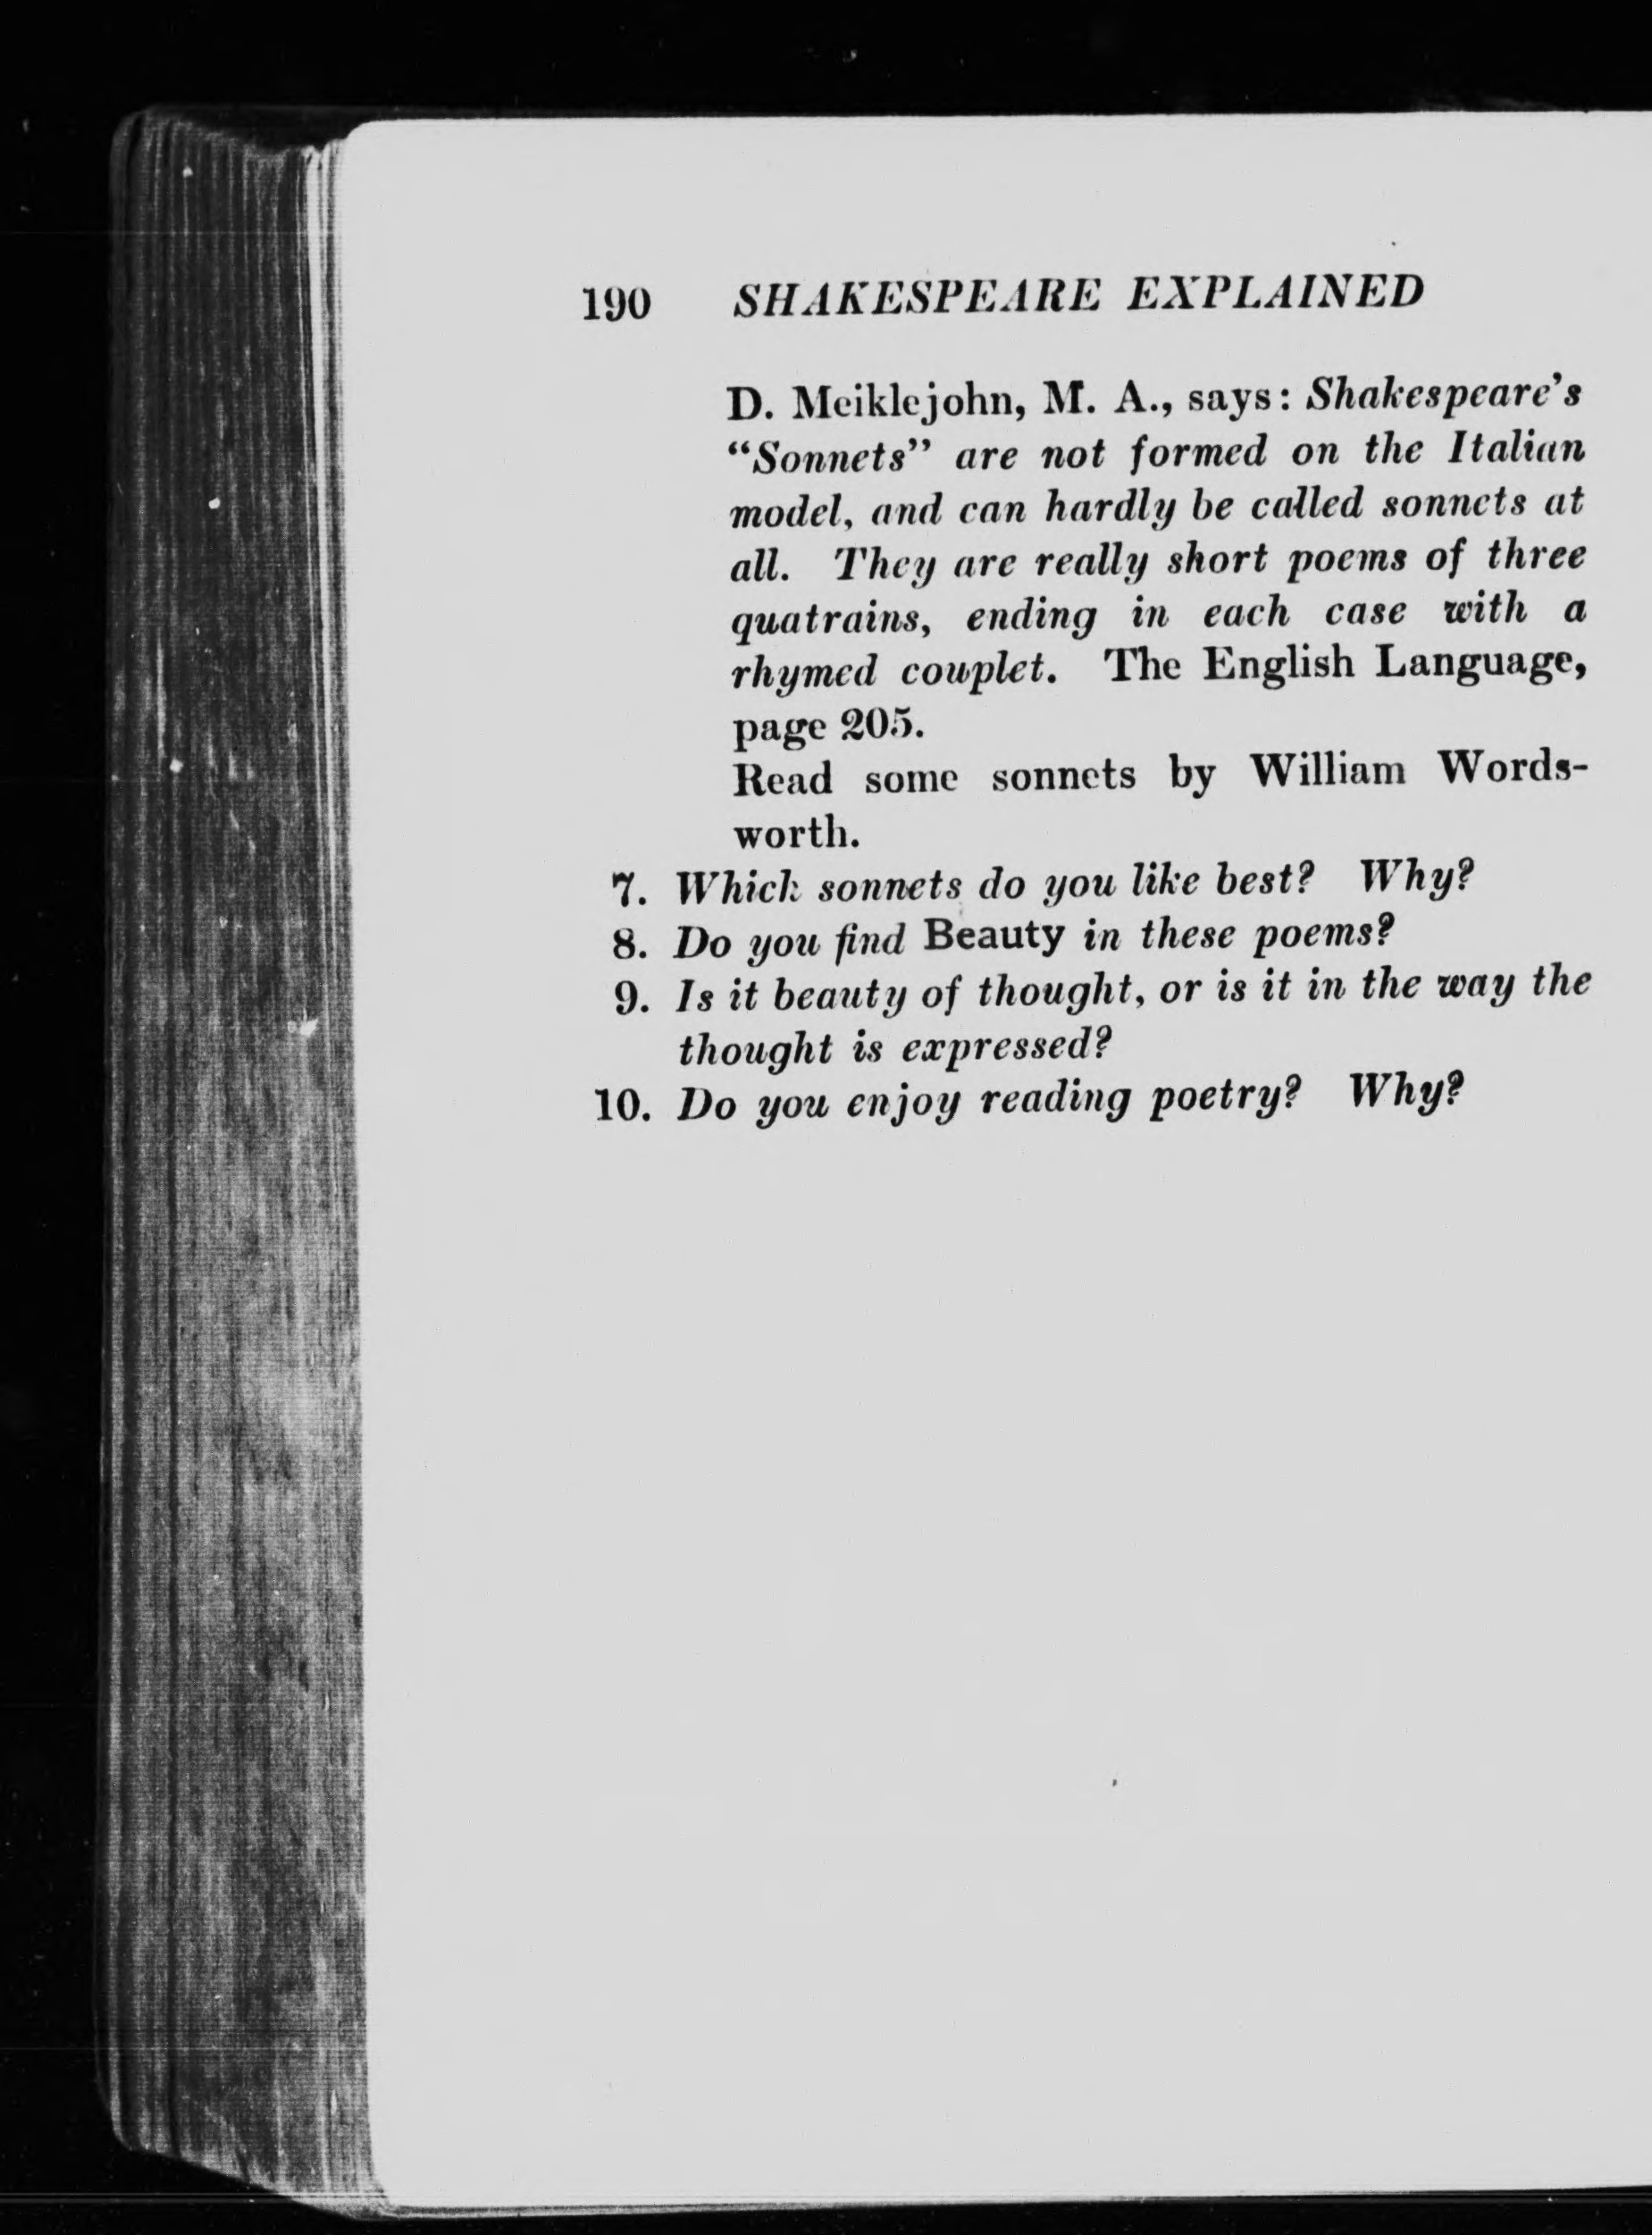 190 SHAKESPEARE EXPLAINED
D. Meiklejohn, M. A., says: Shakespeare's
“Sonnets” are not formed on the Italian
model, and can hardly be called sonnets at
all. They are really short poems of three
quatrains, ending in each case with a
rhymed couplet. The English Language,
page 205.
Read some sonnets by William Words-
worth.
7. Which sonnets do you like best? Why?
8. Do you find Beauty in these poems?
9. Is it beauty of thought, or is it in the way the
thought is expressed?
10. Do you enjoy reading poetry? Why?